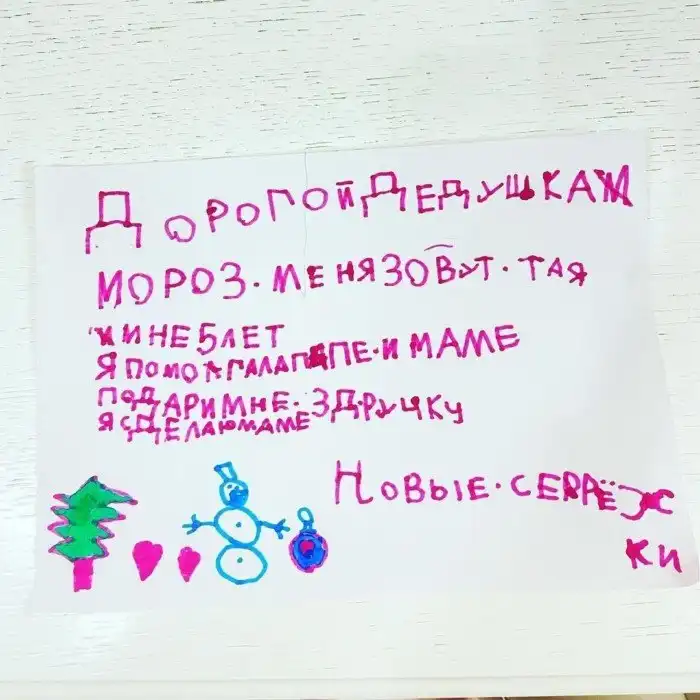 ДОРОГОЙ ДЕДУШКА М
МОРОЗ. МЕНЯ ЗОВУТ. ТАЯ
И НЕ 5 ЛЕТ
Я ПОМОГАЛА ПАПЕ. И МАМЕ
ПОДАРИ МНЕ. 3Д. РУЧКУ
Я СДЕЛАЮ МАМЕ
НОВЫЕ. СЕРЁЖ
КИ